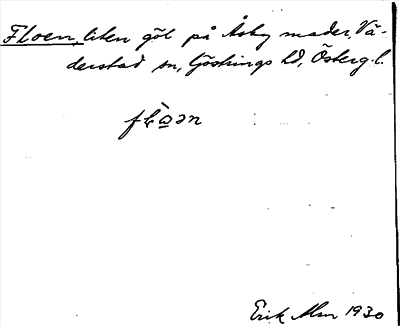 Floen, liten göl på Åsby mader, Vä-
derstad sn, Göstrings hd, Österg. l.
flòən
Erik Alm 1930